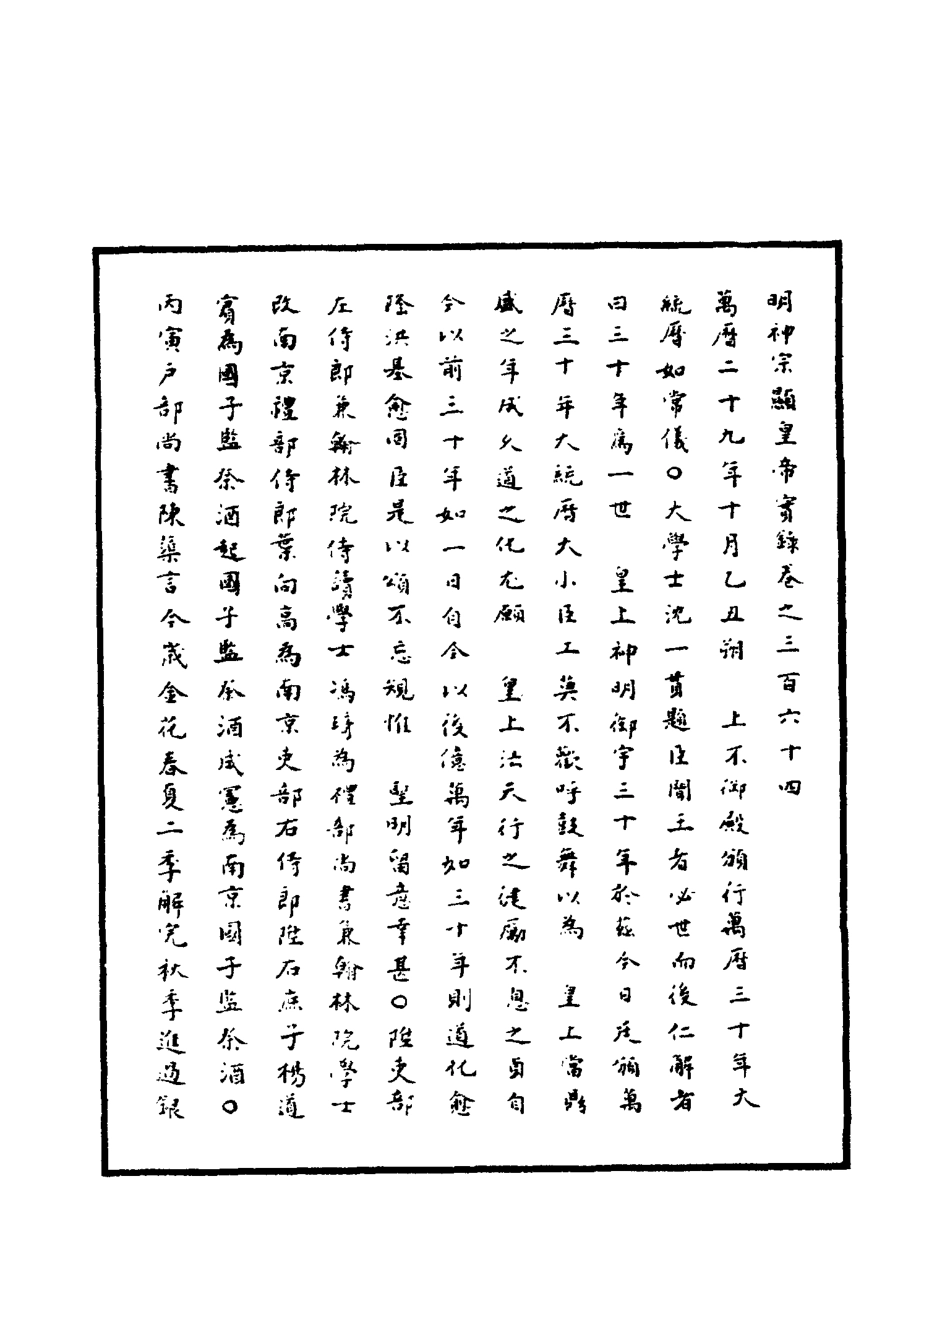 明神宗顯皇帝實錄卷之三百六十四
萬曆二十九年十月乙丑朔　上不御殿頒行萬曆三十年大
統曆如常儀○大學士沈一貫題臣聞王者必世而後仁解者
曰三十年為一世　皇上神明御宇三十年於茲今日廷頒萬
曆三十年大統曆大小臣工莫不歡呼鼓舞以為　皇上當鼎
盛之年成久道之化尤願　皇上法天行之健勵不息之貞自
今以前三十年如一日自今以後億萬年如三十年則道化愈
隆洪基愈固臣是以頌不忘規惟　聖明留意幸甚○陞吏部
左侍郎兼翰林院侍讀學士馮琦為禮部尚書兼翰林院學士
改南京禮部侍郎葉向高為南京吏部右侍郎陞右庶子楊道
賓為國子監祭酒起國子監祭酒成憲為南京國子監祭酒○
丙寅戶部尚書陳蕖言今歲金花春夏二季解完秋季進過銀